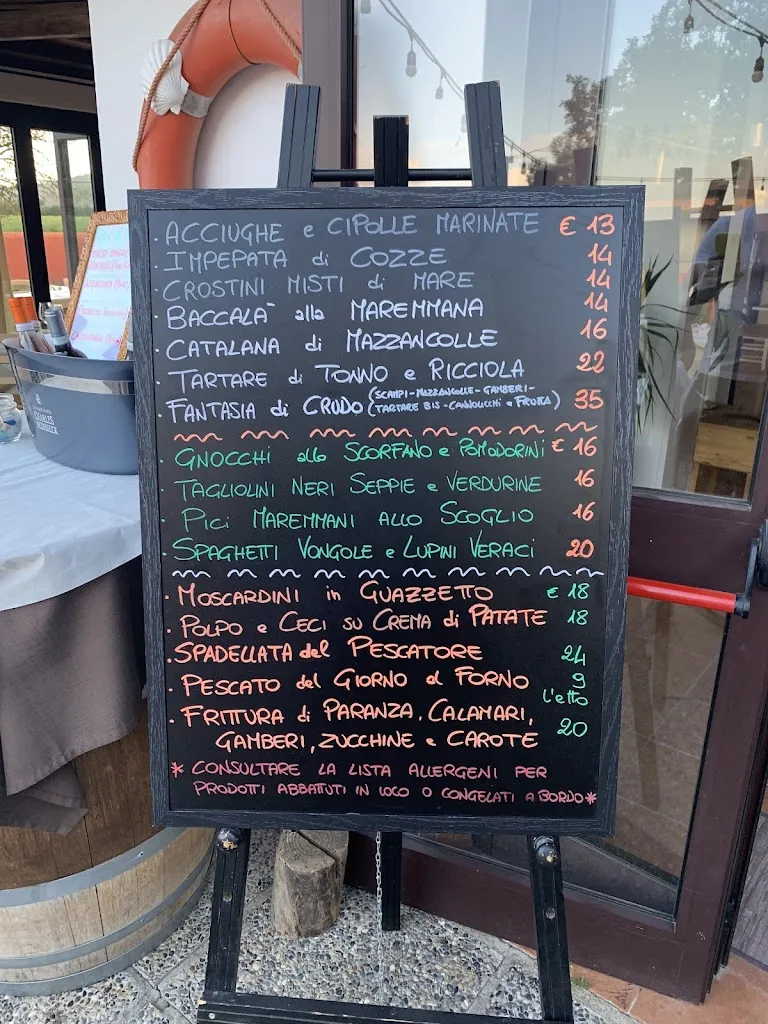 · ACCIUGHE e CIPOLLE MARINATE € 13
· IMPEPATA di COZZE 14
· CROSTINI MISTI di MARE 14
· BACCALA` alla MAREMMANA 14
· CATALANA di MAZZANCOLLE 16
· TARTARE di TONNO e RICCIOLA 22
· FANTASIA di CRUDO (SCAMPI-MAZZANCOLLE-GAMBERI-
TARTARE BIS-CANNOLICCHI e FRUTTA) 35
· GNOCCHI allo SCORFANO e POMODORINI € 16
· TAGLIOLINI NERI SEPPIE e VERDURINE 16
· PICI MAREMMANI ALLO SCOGLIO 16
· SPAGHETTI VONGOLE e LUPINI VERACI 20
· MOSCARDINI in GUAZZETTO € 18
· POLPO e CECI SU CREMA di PATATE 18
· SPADELLATA del PESCATORE 24
· PESCATO del GIORNO al FORNO 9
l'etto
· FRITTURA di PARANZA, CALAMARI, 20
GAMBERI, ZUCCHINE e CAROTE
* CONSULTARE LA LISTA ALLERGENI PER
PRODOTTI ABBATTUTI IN LOCO O CONGELATI A BORDO*
CHARLES